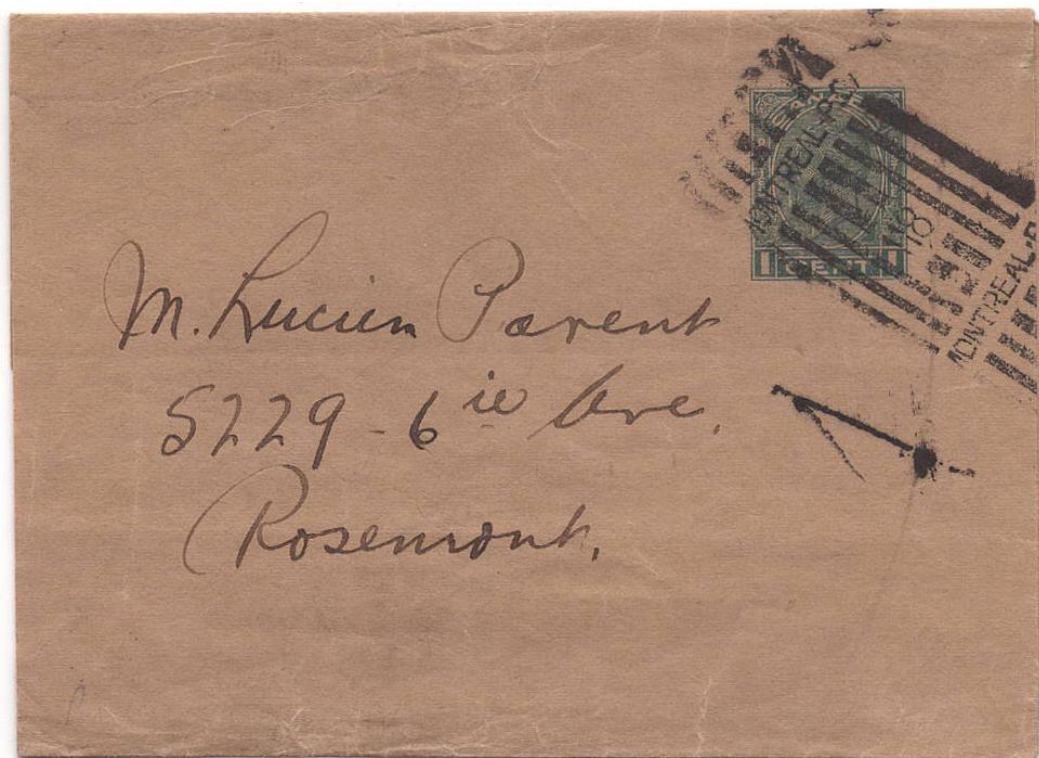 MONTREAL·P.Q.
18
MONTREAL·P
1 CENT 1
M. Lucien Parent
5229 - 6ie Ave.
Rosemont.